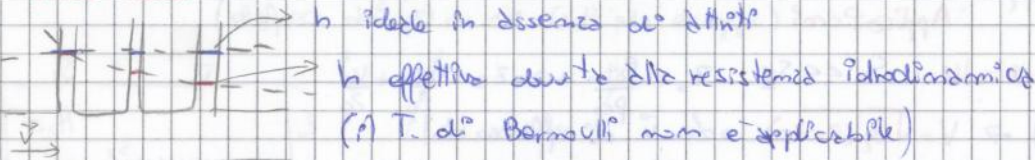 h ideale in assenza di attriti
h effettiva dovuta alla resistenza idrodinamica
(il T. di Bernoulli non è applicabile)
v